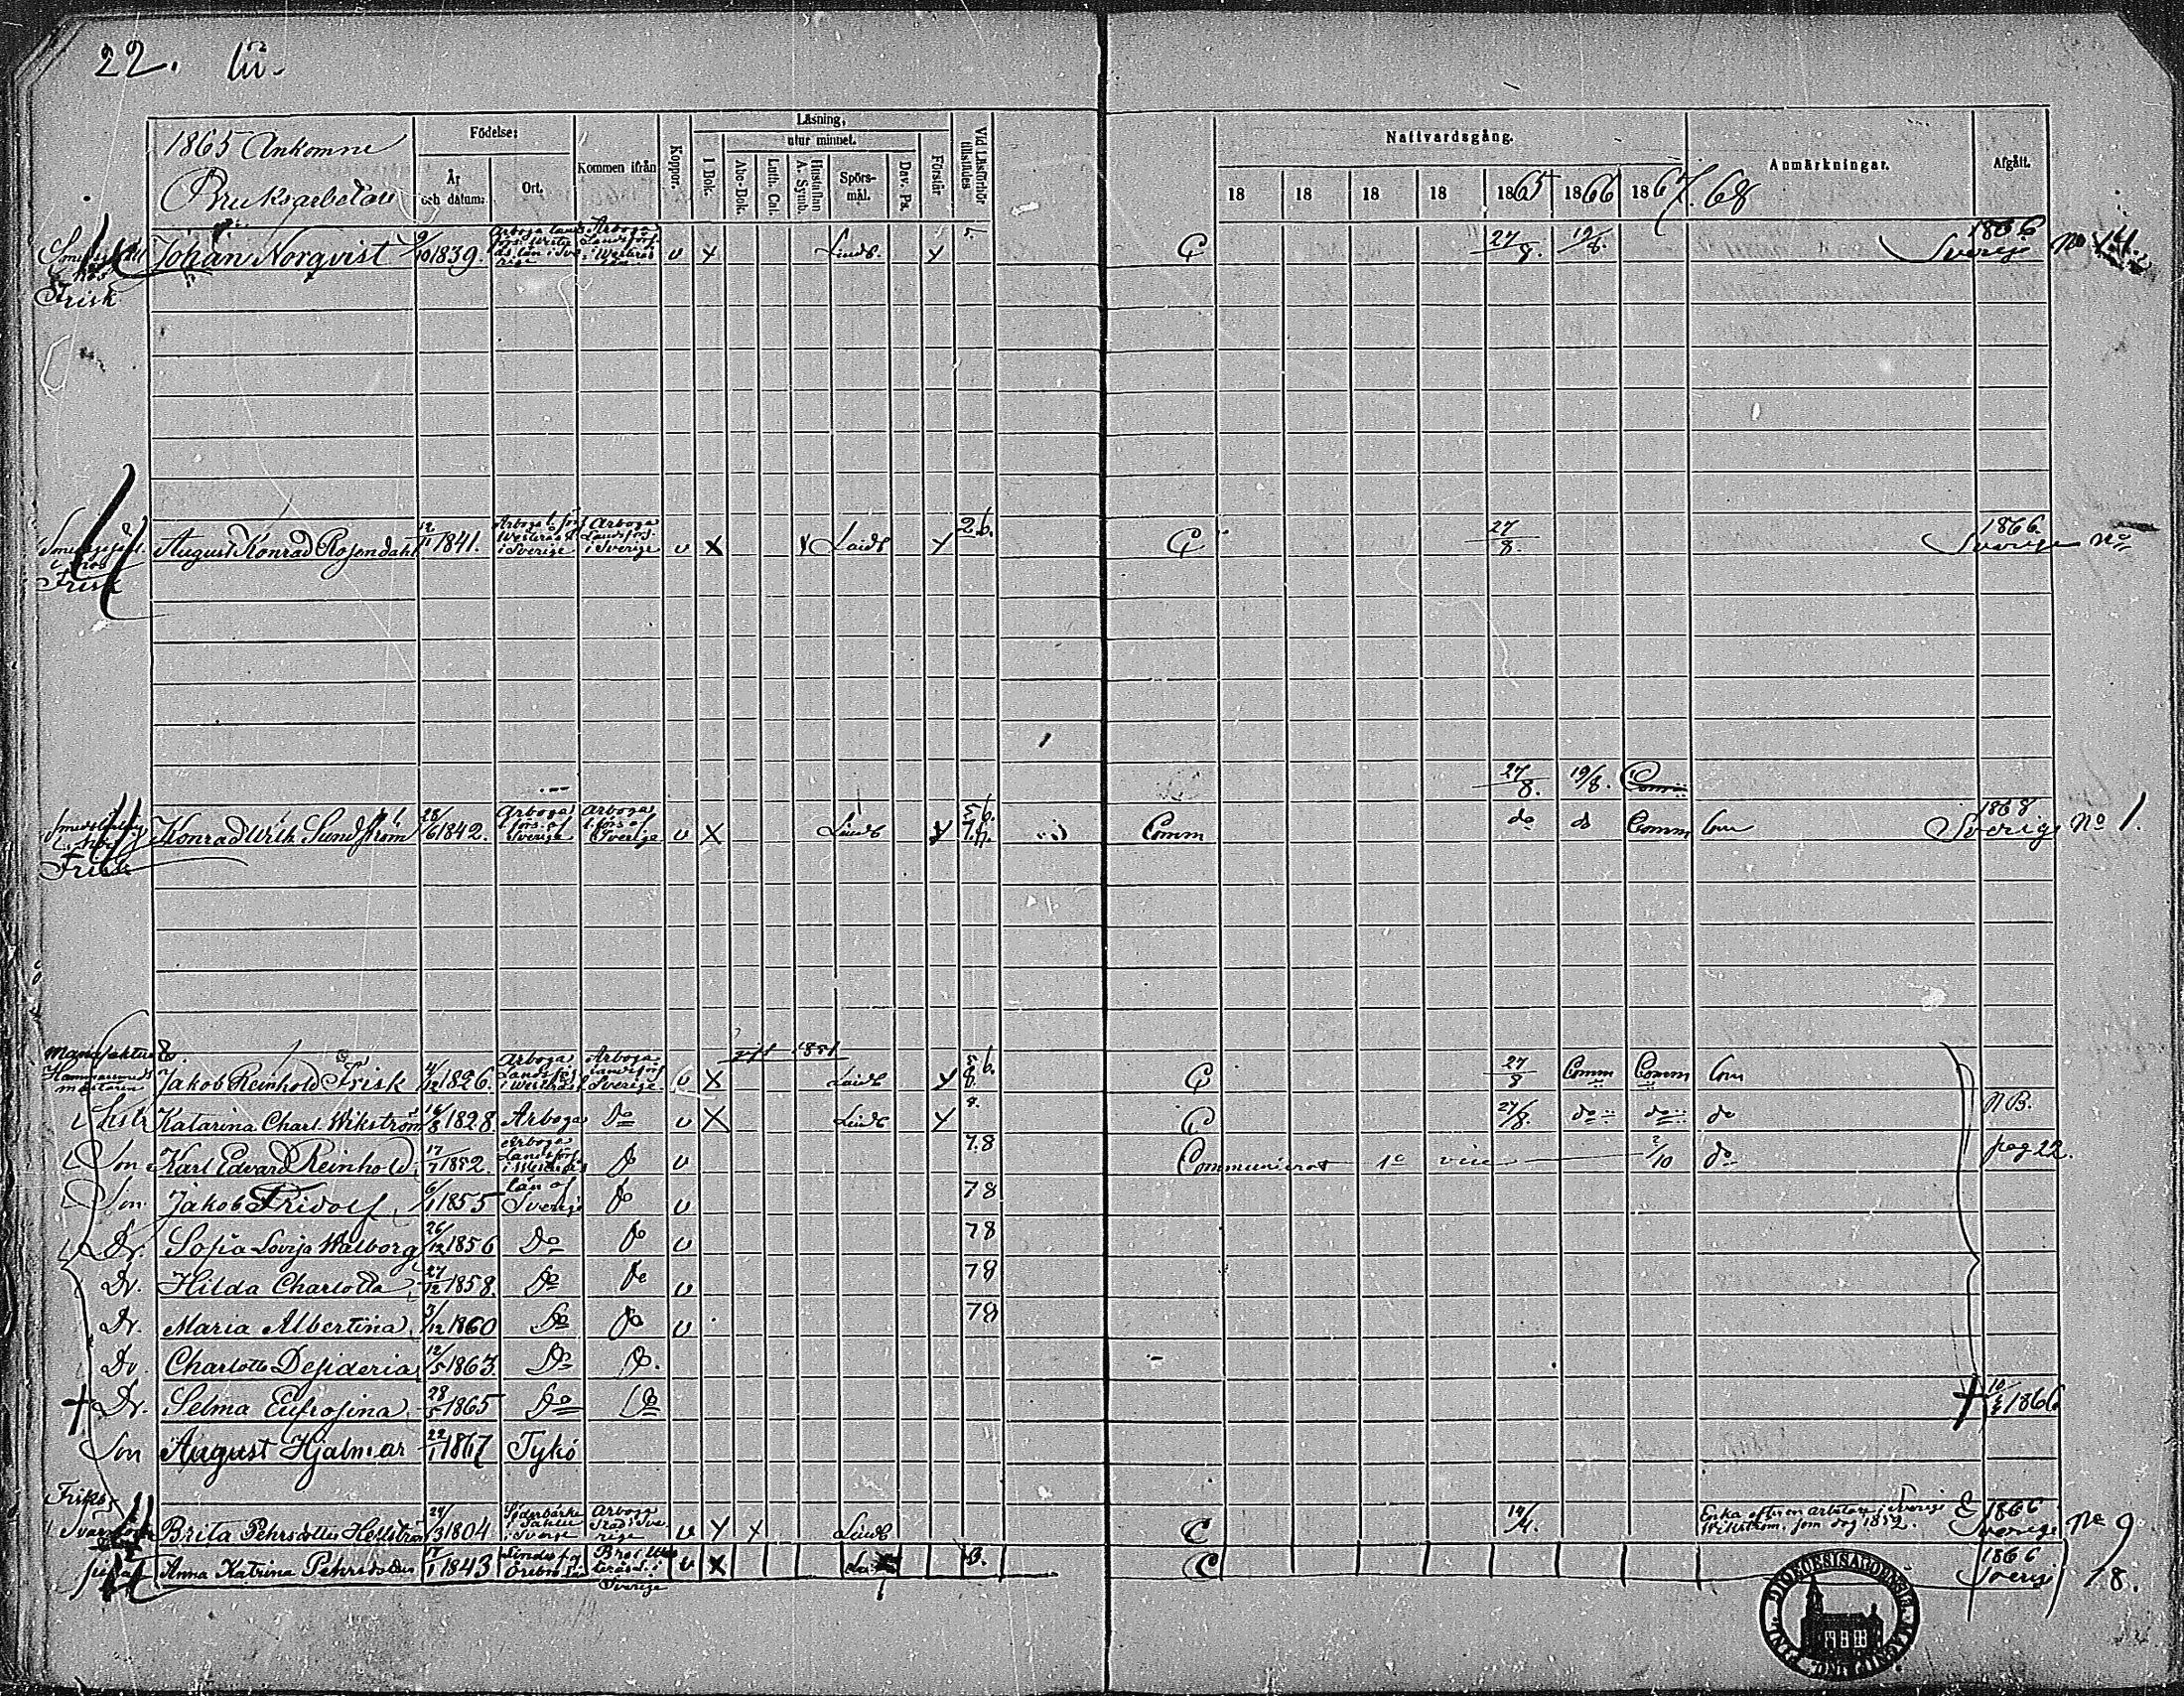 22.
1865 Ankomne
Bruksarbetare
Födelse:
År och datum:
Ort.
Kommen ifrån
Koppor.
Läsning,
utur minnet.
I Bok.
Abc-Bok.
Luth. Cat.
Hustaflan A. Symb.
Spörs-mål.
Dav. Ps.
Förstår
Vid Läsförhör tillstädes
Nattvardsgång.
18 18 18 18 1865 1866 1867. 68
Anmärkningar.
Afgått.
Johan Norqvist 9/10 1839 Arboga lands förs. i Sverige Arboga Landsförs. i Westerås län v x y C 27/8. 19/8. 1866 Sverige No 14.
hos Frisk
August Konrad Rosendahl 12/11 1841. Arboga l. förs i Sverige Arboga Landsförs. i Sverige v x Y y 2.6. C 27/8. 1866 Sverige No
hos Frisk
27/8. 19/8. Comm
Konrad Wilh. Sundström 28/6 1842. Arboga l. förs. af Sverige Arboga l. förs. af Sverige v x Comm do do Comm Com 1868 Sverige No 1.
Frisk
Manufaktur
Hammarsmeds mästaren Jakob Reinhold Frisk 4/12 1826. Arboga Landsförs i Westerås l. Arboga landsförs Sverige v x y C 27/8 Comm Comm Com
Hstr Katarina Charl. Wikström 16/8 1828. Arboga Do v x y 8. C 27/8. do do do NB.
Son Karl Edvard Reinhold 17/7 1852. Arboga Landsförs Do v 7.8 Communicerat 1o vice 2/10 do pag 22.
Son Jakob Fridolf 6/1 1855 län af Sverige Do v 78
Dr. Sofia Lovisa Walborg 26/12 1856 Do Do v 78
Dr. Hilda Charlotta 27/12 1858. Do Do v 78
Dr. Maria Albertina 3/12 1860 Do Do v 78
Dr. Charlotta Desideria 12/5 1863. Do Do.
† Dr. Selma Eufrosina 28/5 1865 Do Do † 1866
Son August Hjalmar 22/1 1867 Tykö
Frisks
Brita Pehrsdotter Hellström 24/3 1804 Söderbärke i Sverige Arboga Stad i Sverige v Y x C 14/4. Enka efter en arbetare i Sverige Wikström, som dog 1852. 1866 Sverige No 9
pigan Anna Katrina Pehrsdotter 1843 v x C 1866 Sverige 18.